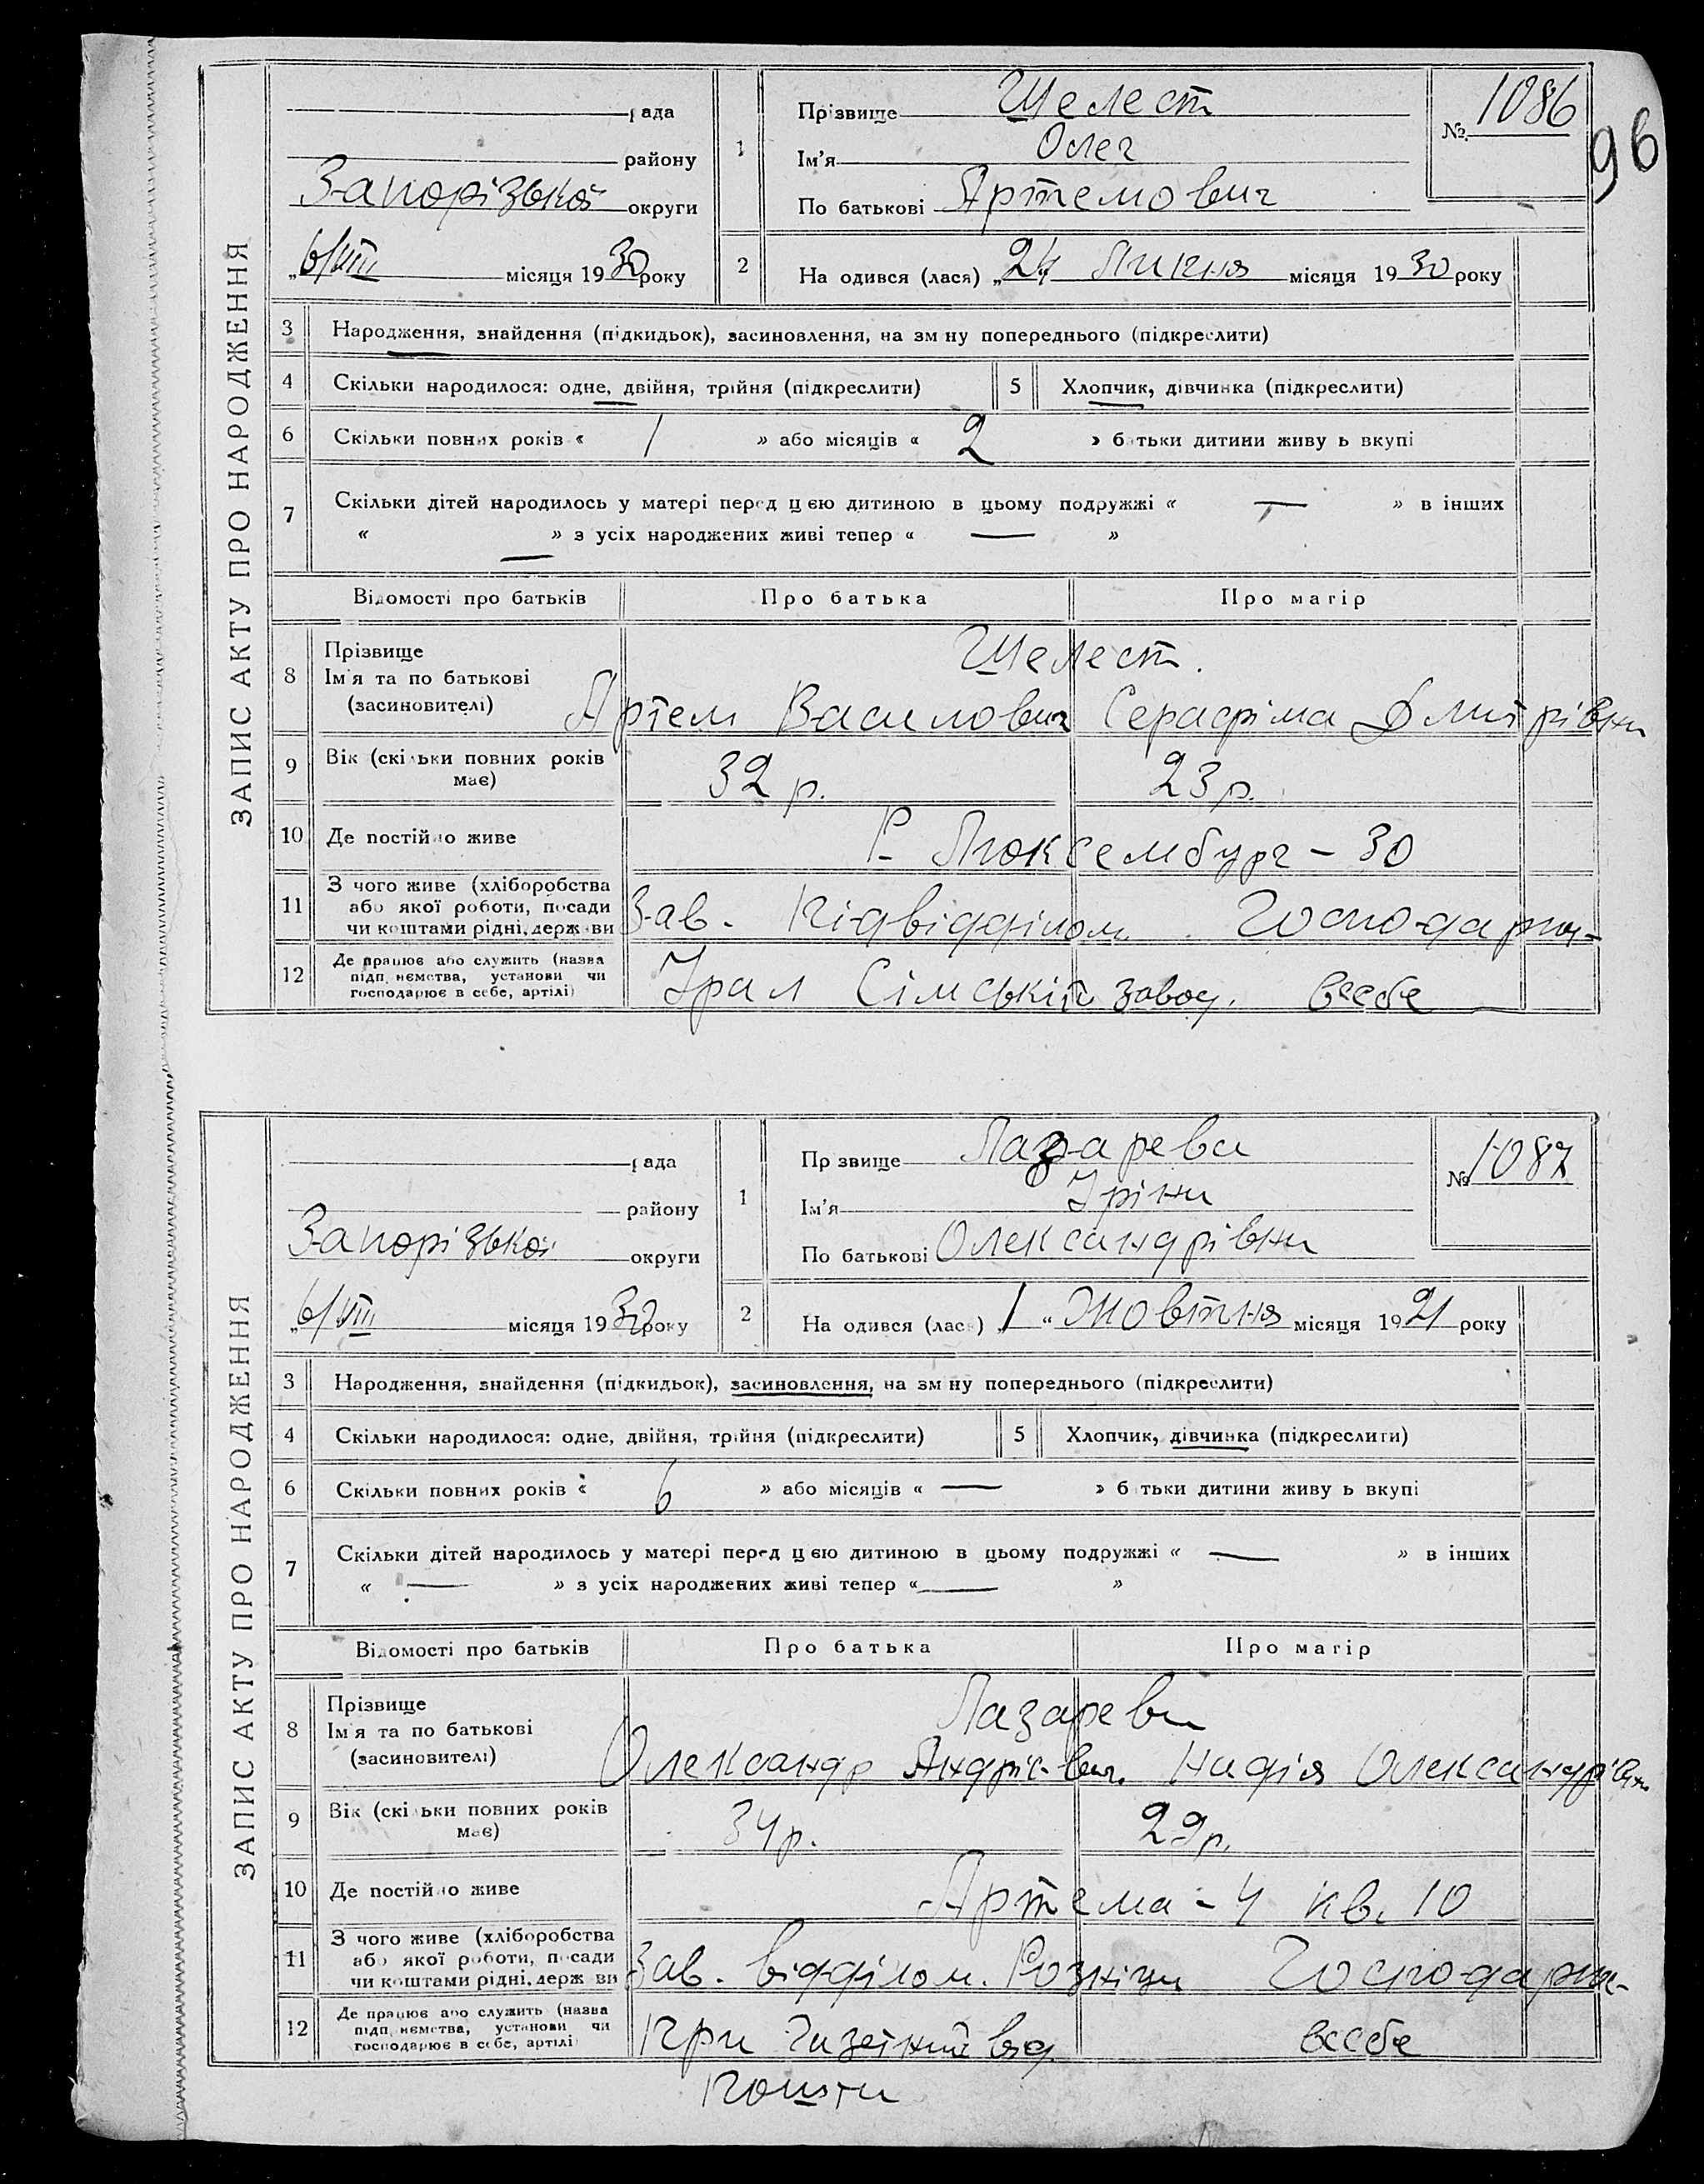 96
ЗАПИС АКТУ ПРО НАРОДЖЕННЯ
рада
району
Запорізької округи
„6/VIII місяця 1930 року
1
Прізвище Шелест
Ім'я Олег
По батькові Артемович
№ 1086
2 На одився (лася) „24 Липня місяця 1930 року
3 Народження, знайдення (підкидьок), засиновлення, на зм ну попереднього (підкреслити)
4 Скільки народилося: одне, двійня, трійня (підкреслити) 5 Хлопчик, дівчинка (підкреслити)
6 Скільки повних років « 1 » або місяців « 2 » б тьки дитини живу ь вкупі
7 Скільки дітей народилось у матері перед цею дитиною в цьому подружжі « — » в інших
« — » з усіх народжених живі тепер « — »
Відомості про батьків Про батька Про матір
8 Прізвище Шелест.
Ім'я та по батькові
(засиновителі) Артем Василович Серафіма Дмитрівни
9 Вік (скільки повних років
має) 32 р. 23 р.
10 Де постійно живе Р. Люксембург - 30
11 З чого живе (хліборобства
або якої роботи, посади
чи коштами рідні, держ ви Зав. Підвідділом. Господарня-
12 Де працює або служить (назва
підп немства, установи чи
господарює в себе, артілі) Урал Сімський завод. всебе
ЗАПИС АКТУ ПРО НАРОДЖЕННЯ
рада
району
Запорізької округи
„6/VIII місяця 1930 року
1
Пр звище Лазарева
Ім'я Іріни
По батькові Олександрівни
№ 1087
2 На одився (лася) „1" Жовтня місяця 1921 року
3 Народження, знайдення (підкидьок), засиновлення, на зм ну попереднього (підкреслити)
4 Скільки народилося: одне, двійня, трійня (підкреслити) 5 Хлопчик, дівчинка (підкреслити)
6 Скільки повних років « 6 » або місяців « — » б тьки дитини живу ь вкупі
7 Скільки дітей народилось у матері перед цею дитиною в цьому подружжі « — » в інших
« — » з усіх народжених живі тепер « — »
Відомості про батьків Про батька Про матір
8 Прізвище Лазареви
Ім'я та по батькові
(засиновителі) Олександр Андрієвич. Надія Олександрівни
9 Вік (скі ьки повних років
має) 34 р. 29 р.
10 Де постійно живе Артема - 4 кв. 10
11 З чого живе (хліборобства
або якої роботи, посади
чи коштами рідні, держ ви Зав. відділом. Розніци Господарня-
12 Де працює або служить (назва
підп немства, установи чи
господарює в себе, артілі) При від. всебе
пошти